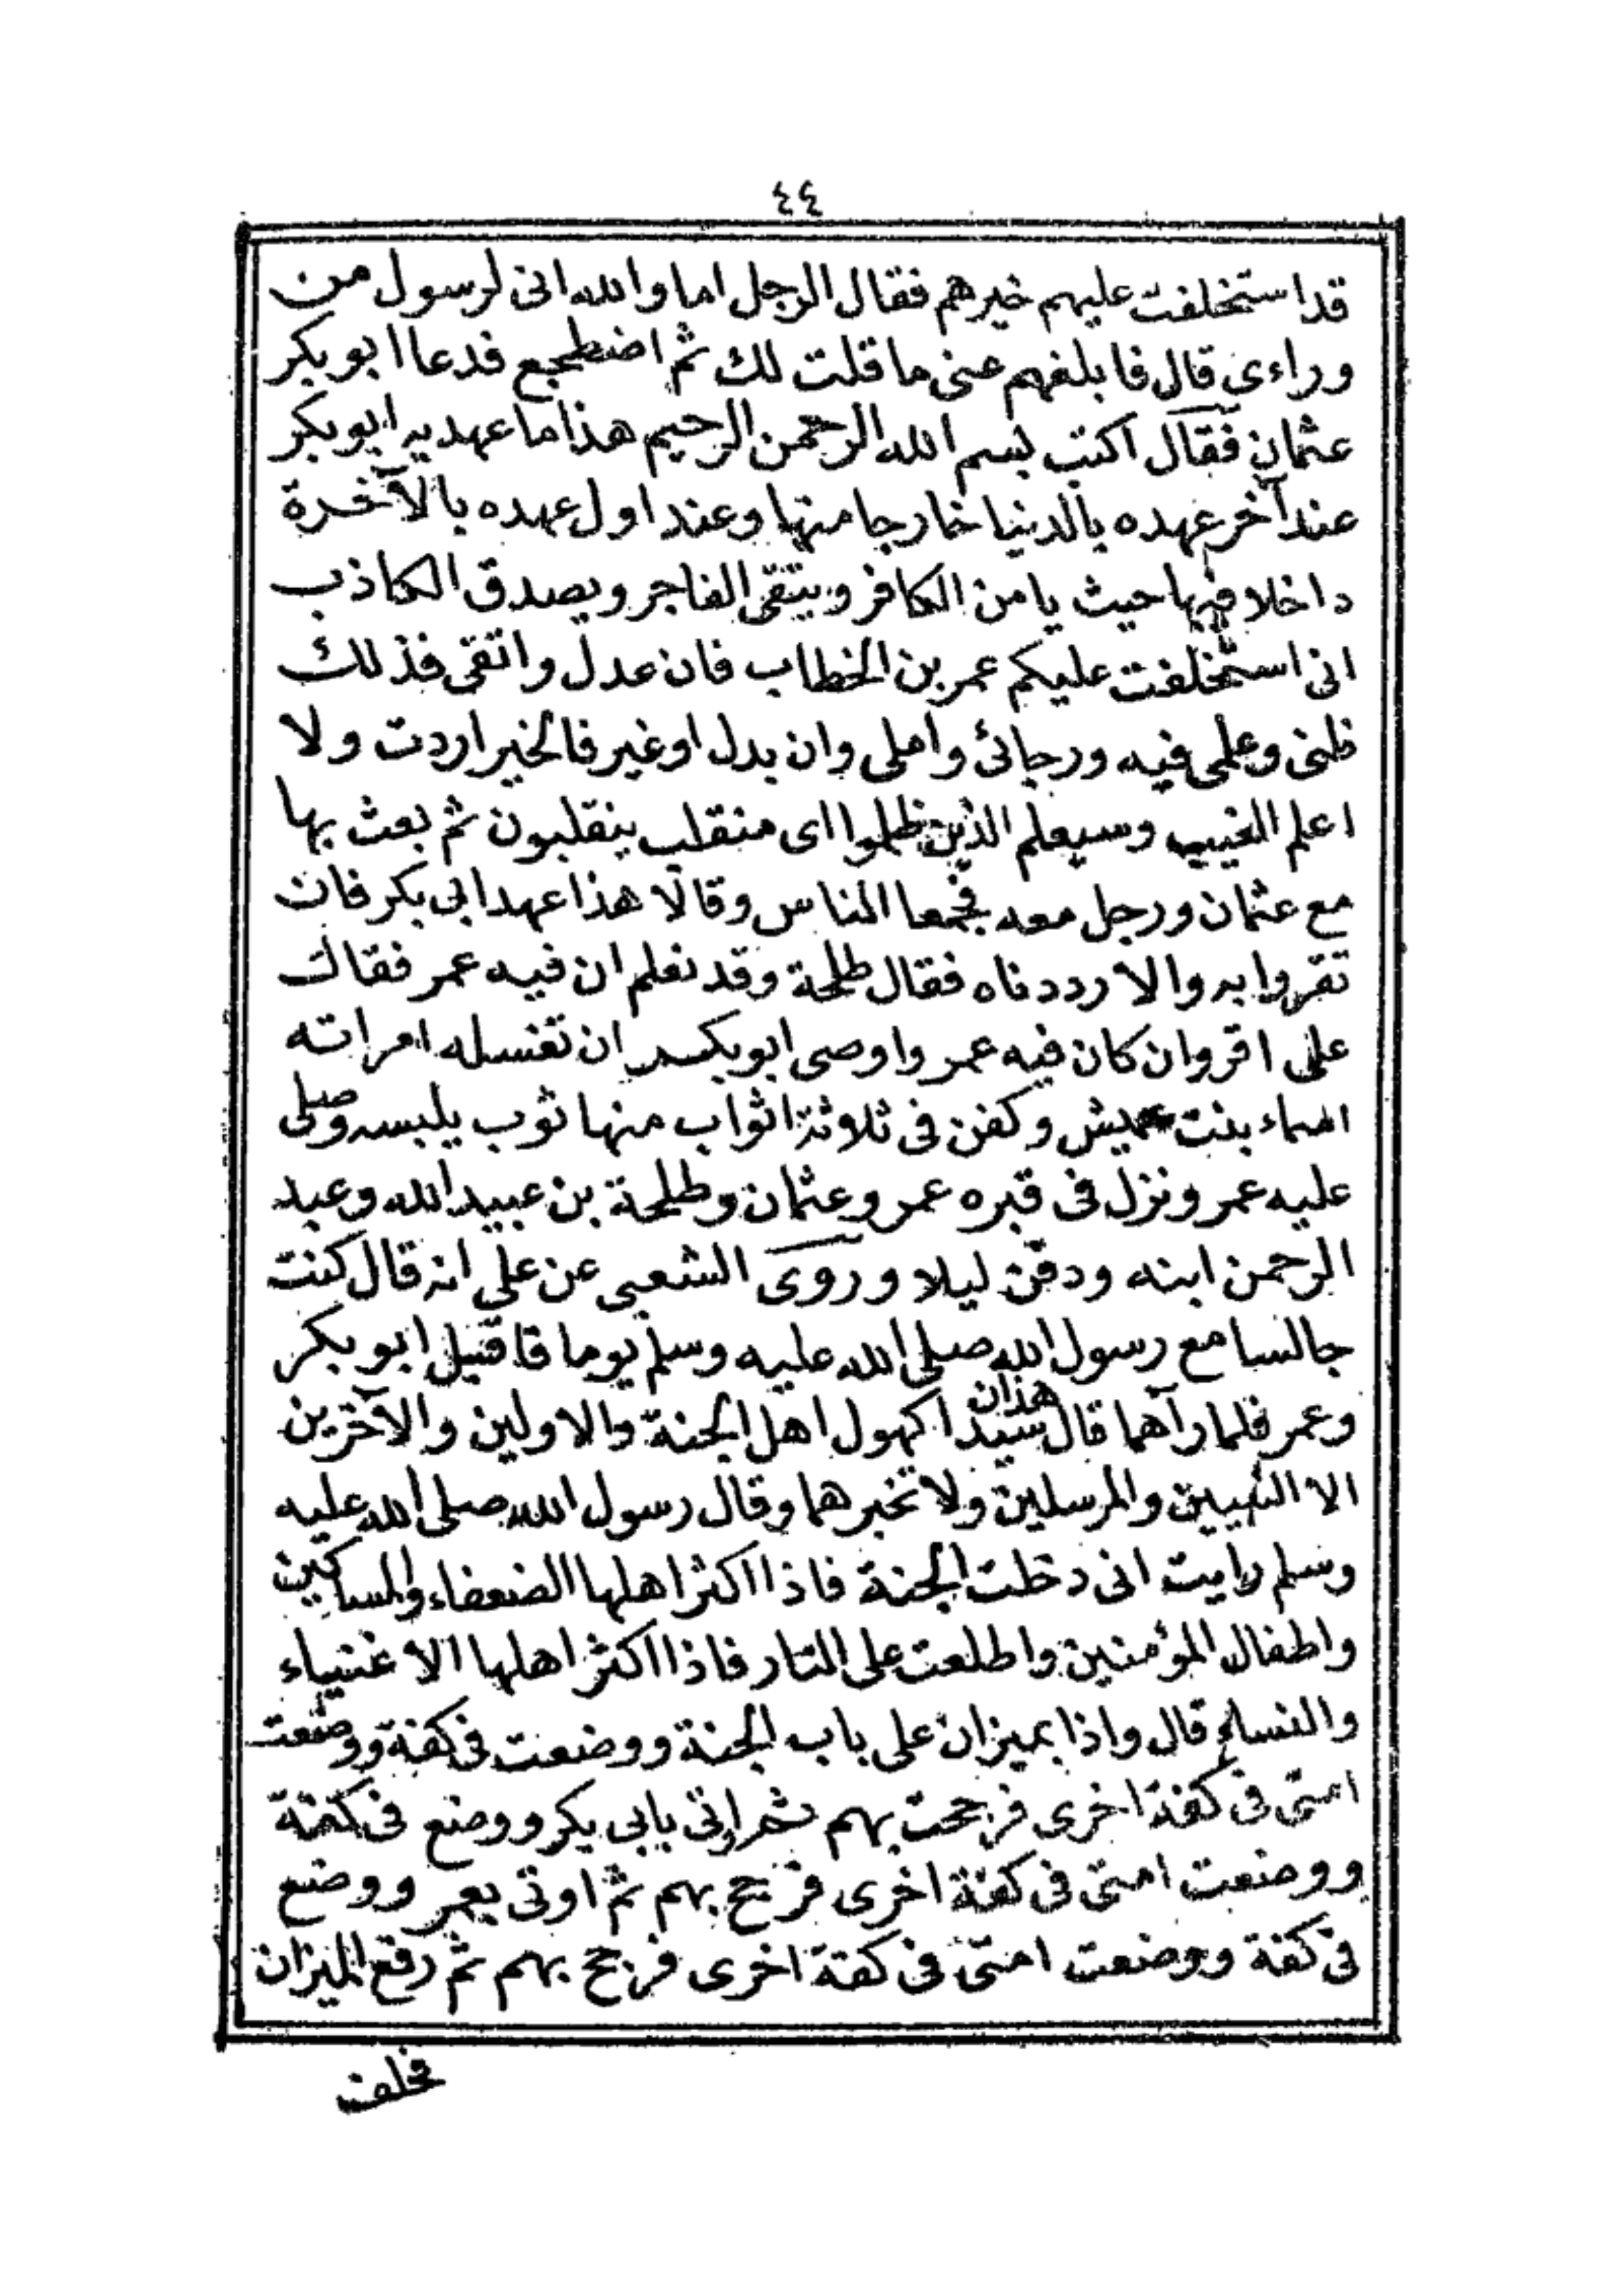 ٤٤
قد استخلفت عليهم خيرهم فقال الرجل اما والله انى لرسول من
وراءى قال فابلغهم عنى ما قلت لك ثم اضطجع فدعا ابو بكر
عثمان فقال اكتب بسم الله الرحمن الرحيم هذا ما عهد به ابو بكر
عند آخر عهده بالدنيا خارجا منها وعند اول عهده بالآخرة
داخلا فيها حيث يامن الكافر ويتقى الفاجر ويصدق الكاذب
انى استخلفت عليكم عمر بن الخطاب فان عدل واتقى فذلك
ظنى وعلمى فيه ورجائ واملى وان بدل او غير فالخير اردت ولا
اعلم الغيب وسيعلم الذين ظلموا اى منقلب ينقلبون ثم بعث بها
مع عثمان ورجل معه فجمعا الناس وقالا هذا عهد ابى بكر فان
تقروا به والا رددناه فقال طلحة وقد نعلم ان فيه عمر فقال
على اقروان كان فيه عمر واوصى ابو بكر ان تغسله امراته
اسماء بنت عميش وكفن فى ثلاثة اثواب منها ثوب يلبسه وصلى
عليه عمر ونزل فى قبره عمر وعثمان وطلحة بن عبيد الله وعبد
الرحمن ابنه ودفن ليلا وروى الشعبى عن على انه قال كنت
جالسا مع رسول الله صلى الله عليه وسلم يوما فاقبل ابو بكر
وعمر فلما رآهما قال هذان سيدا كهول اهل الجنة والاولين والآخرين
الا النبيين والمرسلين ولا تخبرهما وقال رسول الله صلى الله عليه
وسلم رايت انى دخلت الجنة فاذا اكثر اهلها الضعفاء والمساكين
واطفال المؤمنين واطلعت على النار فاذا اكثر اهلها الاغنياء
والنساء قال واذا بميزان على باب الجنة ووضعت فى كفة ووضعت
امتى فى كفة اخرى فرجحت بهم ثم اوتى بابى بكر ووضع فى كفة
ووضعت امتى فى كفة اخرى فرجح بهم ثم اوتى بعمر ووضع
فى كفة ووضعت امتى فى كفة اخرى فرجح بهم ثم رفع الميزان
فخلف